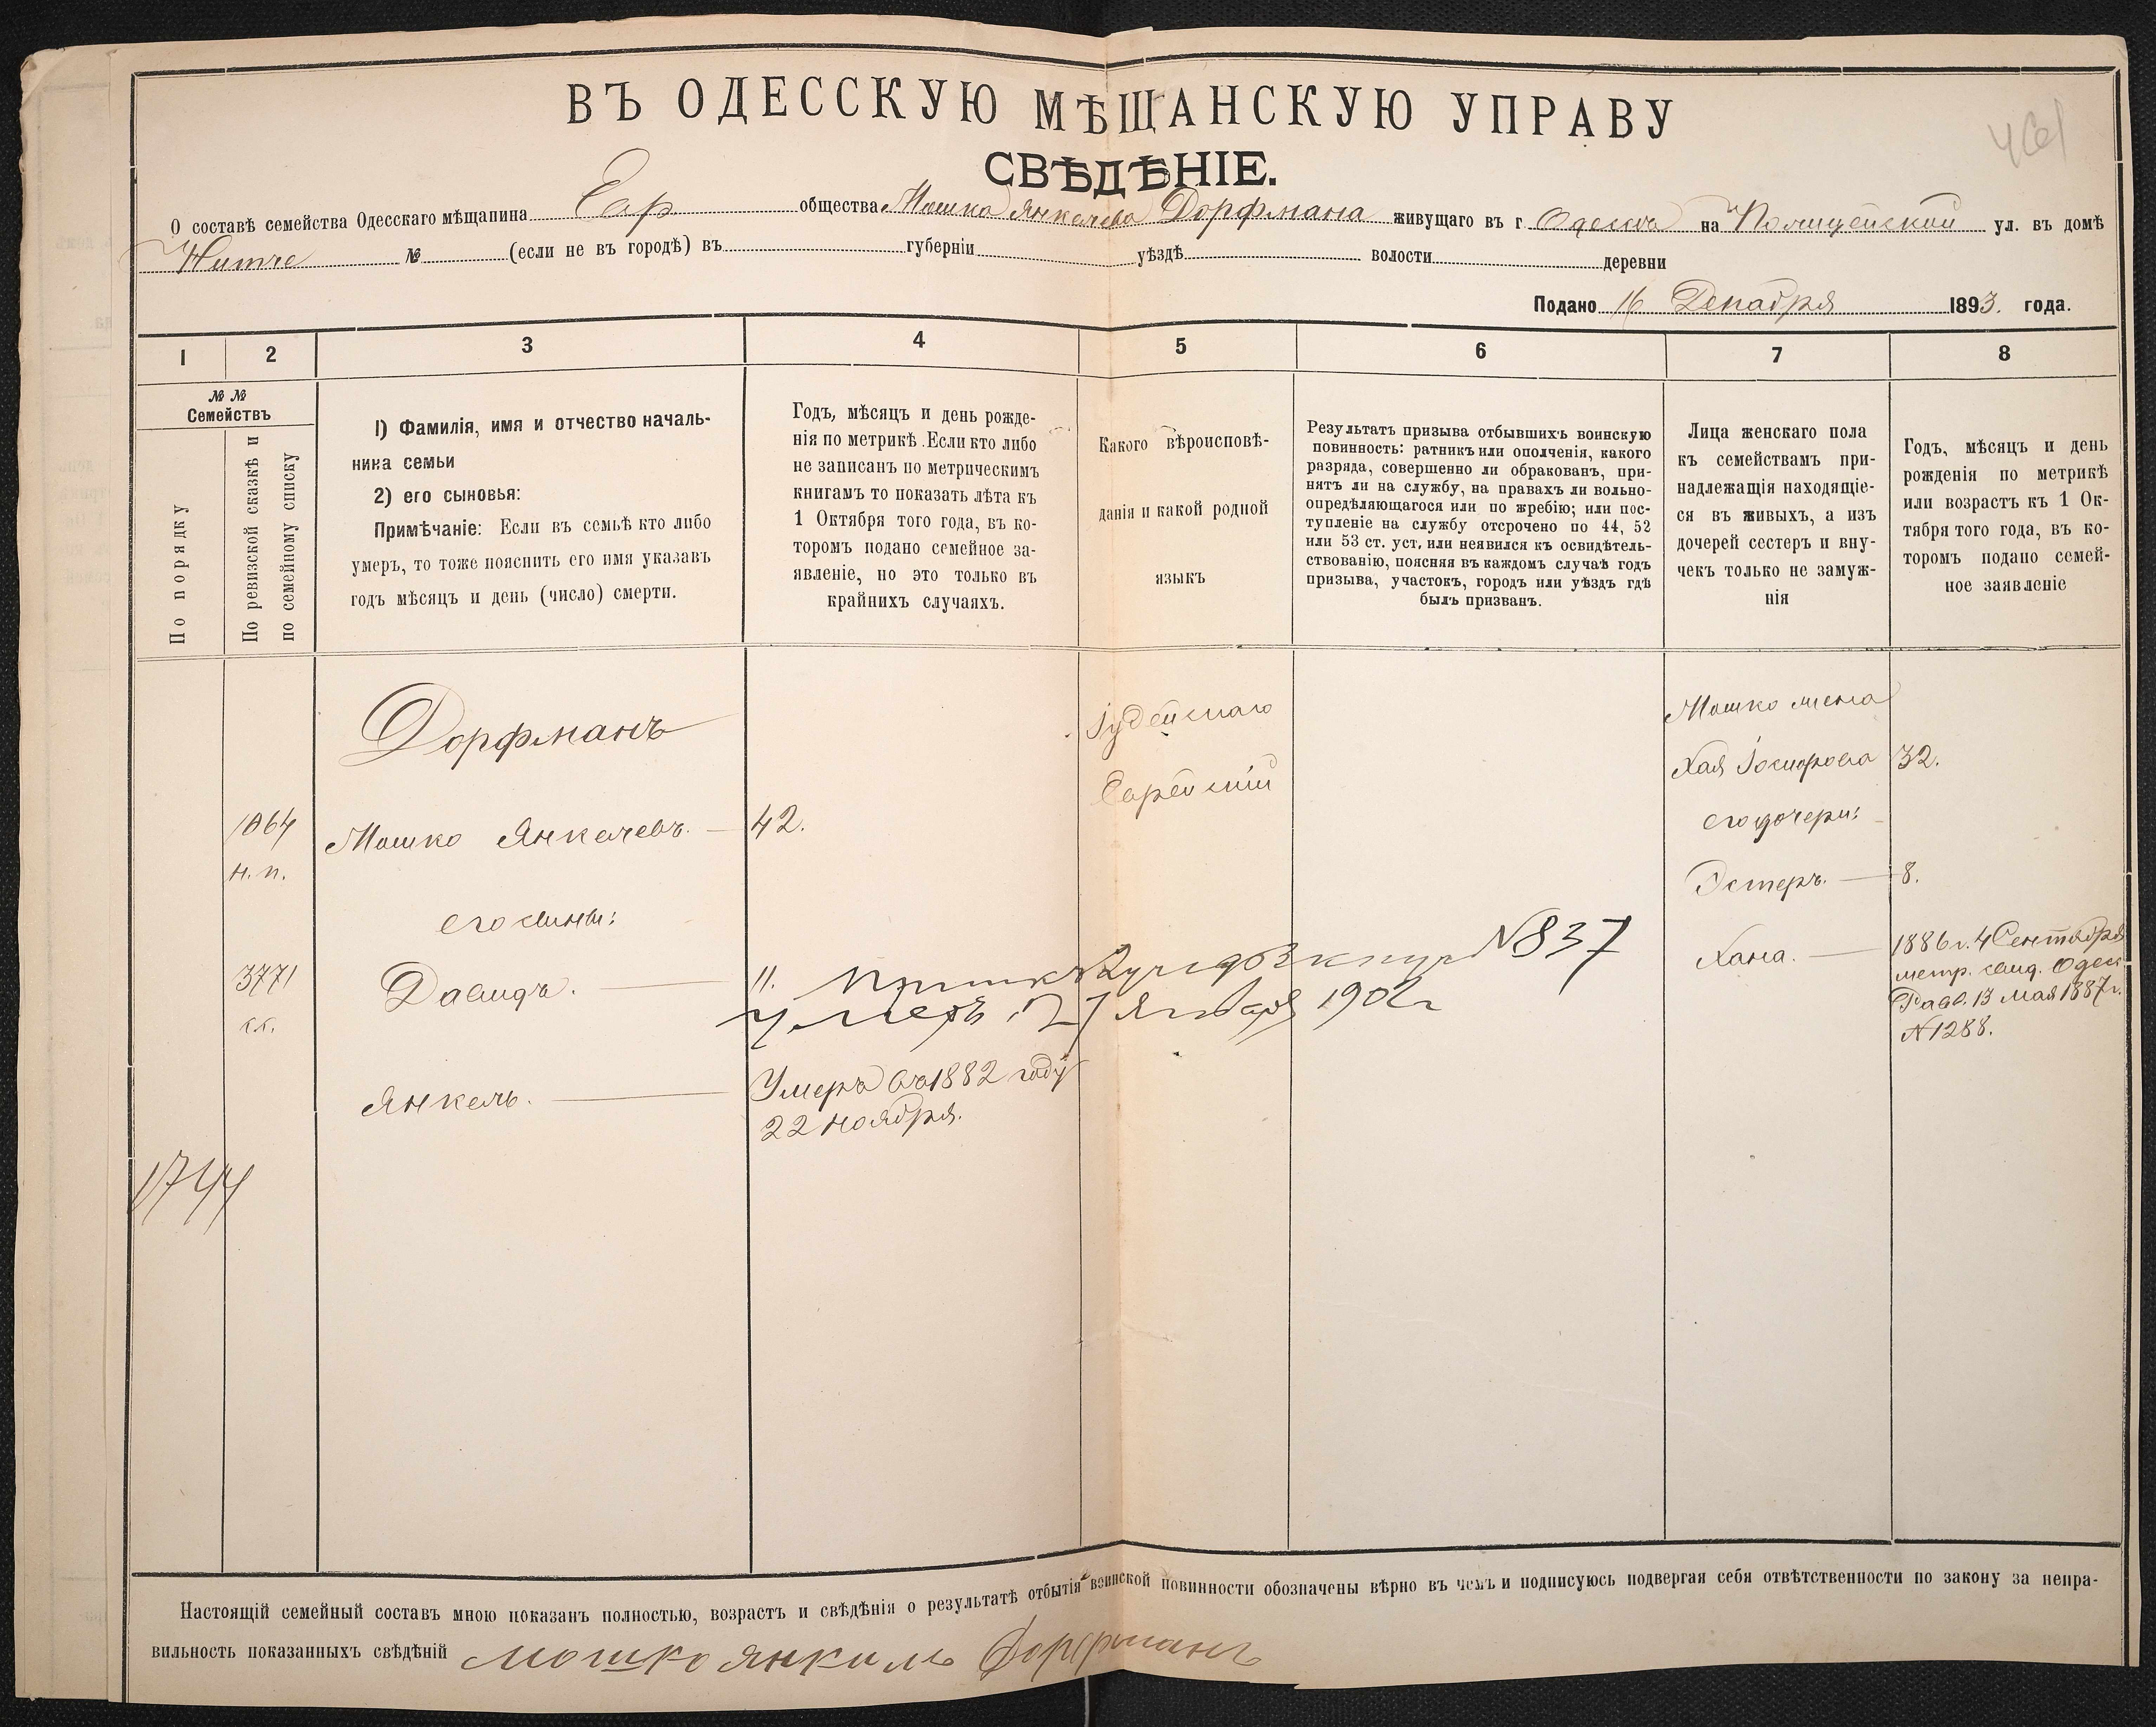 ВЪ ОДЕССКУЮ МѢЩАНСКУЮ УПРАВУ
СВѢДѢНІЕ.
О составѣ семейства Одесскаго мѣщанина Евр. общества Мошко Янкелева Дорфмана живущаго въ г. Одессѣ на Полицейской ул. въ домѣ
№ (если не въ городѣ) въ губерніи уѣздѣ волости деревни
Подано 16 Декабря 1893. года.
1 2 3 4 5 6 7 8
№ №
Семействъ
По порядку
По ревизской сказкѣ и
по семейному списку
1) Фамилія, имя и отчество началь-
ника семьи
2) его сыновья:
Примѣчаніе: Если въ семьѣ кто либо
умеръ, то тоже пояснить его имя указавъ
годъ мѣсяцъ и день (число) смерти.
Годъ, мѣсяцъ и день рожде-
нія по метрикѣ. Если кто либо
не записанъ по метрическимъ
книгамъ то показать лѣта къ
1 Октября того года, въ ко-
торомъ подано семейное за-
явленіе, но это только въ
крайнихъ случаяхъ.
Какого вѣроисповѣ-
данія и какой родной
языкъ
Результатъ призыва отбывшихъ воинскую
повинность: ратникъ или ополченія, какого
разряда, совершенно ли обракованъ, при-
нятъ ли на службу, на правахъ ли вольно-
опредѣляющагося или по жребію; или пос-
тупленіе на службу отсрочено по 44, 52
или 53 ст. уст, или неявился къ освидѣтель-
ствованію, поясняя въ каждомъ случаѣ годъ
призыва, участокъ, городъ или уѣздъ гдѣ
былъ призванъ.
Лица женскаго пола
къ семействамъ при-
надлежащія находящіе-
ся въ живыхъ, а изъ
дочерей сестеръ и вну-
чекъ только не замуж-
нія
Годъ, мѣсяцъ и день
рожденія по метрикѣ
или возрастъ къ 1 Ок-
тября того года, въ ко-
торомъ подано семей-
ное заявленіе
Дорфманъ
1064
н. п.
Мошко Янкелевъ. 42.
его сыновья:
3771
с.с.
Давидъ. 11.
№837
умеръ 27 Января 1902 г
Янкель. Умеръ въ 1882 году
22 ноября.
1744
Іудейскаго
Еврейскій
Мошко жена
Хая Іосифова 32.
его дочери:
Эстеръ. 8.
Хана. 1886 г. 4 Сентября
метр. свид. Одес.
Равв. 13 мая 1887 г.
№1288.
Настоящій семейный составъ мною показанъ полностью, возрастъ и свѣдѣнія о результатѣ отбытія воинской повинности обозначены вѣрно въ чемъ и подписуюсь подвергая себя отвѣтственности по закону за непра-
вильность показанныхъ свѣдѣній Мошко Янкиль Дорфманъ